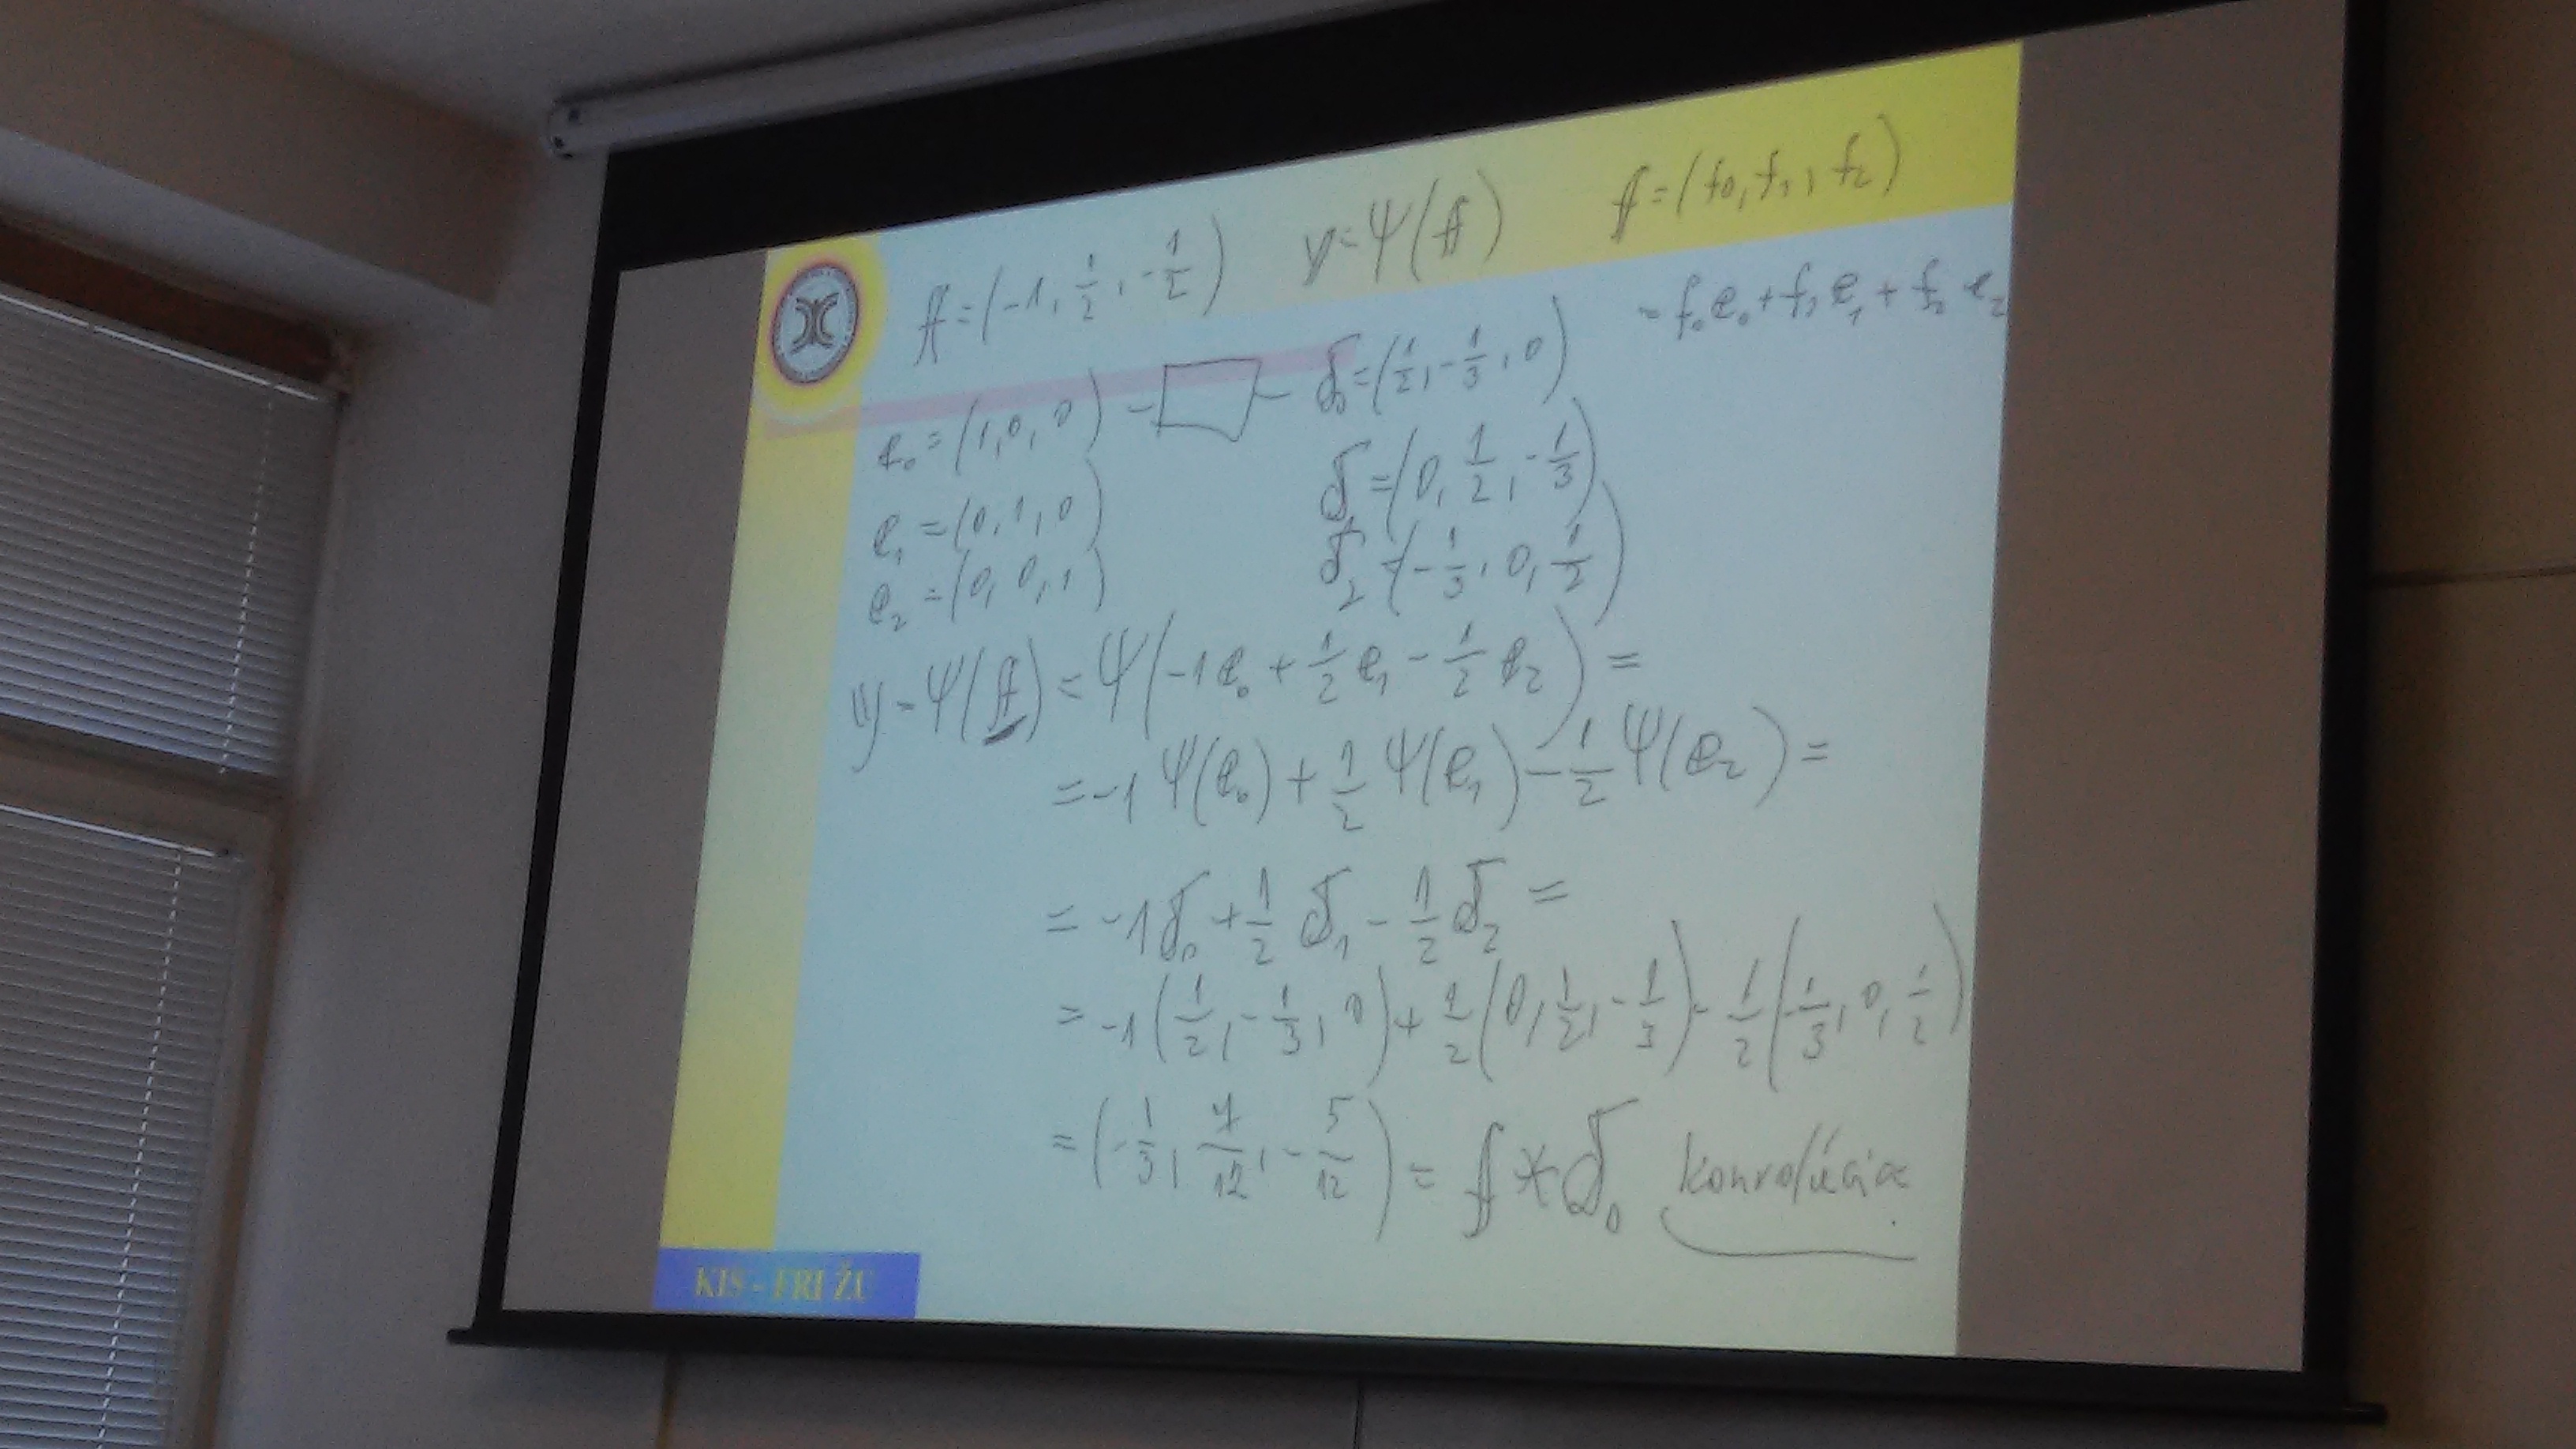 f = (-1, 1/2, -1/2)   y = Ψ(f)   f = (f0, f1, f2)
= f0 e0 + f1 e1 + f2 e2
e0 = (1, 0, 0) - □ - δ0 = (1/2, -1/3, 0)
e1 = (0, 1, 0)   δ1 = (0, 1/2, -1/3)
e2 = (0, 0, 1)   δ2 = (-1/3, 0, 1/2)
y = Ψ(f) = Ψ(-1 e0 + 1/2 e1 - 1/2 e2) =
= -1 Ψ(e0) + 1/2 Ψ(e1) - 1/2 Ψ(e2) =
= -1 δ0 + 1/2 δ1 - 1/2 δ2 =
= -1 (1/2, -1/3, 0) + 1/2 (0, 1/2, -1/3) - 1/2 (-1/3, 0, 1/2)
= (-1/3, 7/12, -5/12) = f * δ0 konvolúcia
KIS - FRI ŽU